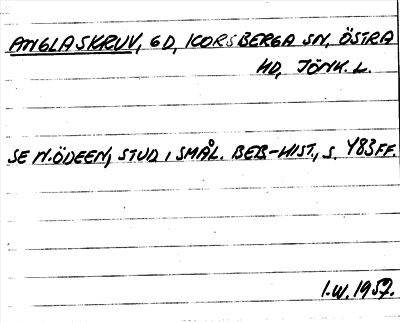 ANGLASKRUV, GD, KORSBERGA SN, ÖSTRA
HD, JÖNK. L.
SE N. ÖDEEN, STUD I SMÅL. BEB-HIST., S. 483FF.
I.W. 1957.